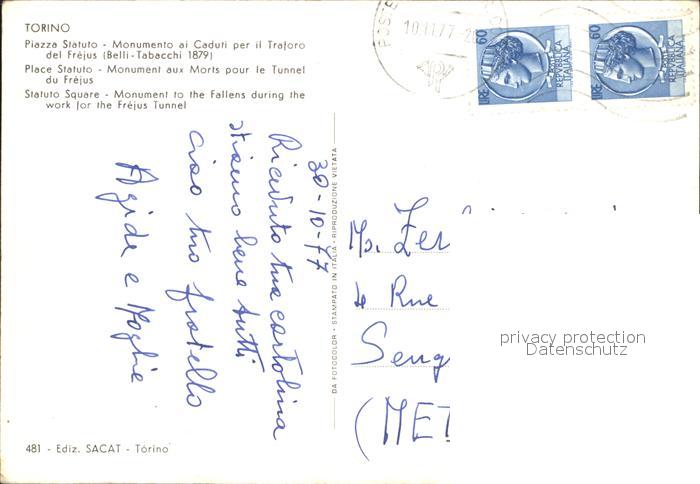 TORINO
Piazza Statuto - Monumento ai Caduti per il Traforo
del Fréjus (Belli-Tabacchi 1879)
Place Statuto - Monument aux Morts pour le Tunnel
du Fréjus
Statuto Square - Monument to the Fallens during the
work for the Fréjus Tunnel
POSTE
10.11.77-20
LIRE 60
REPUBBLICA
ITALIANA
LIRE 60
REPUBBLICA
ITALIANA
30-10-77
Ricevuto tua cartolina
stiamo bene tutti
ciao tuo fratello
Agide e Moglie
DA FOTOCOLOR - STAMPATO IN ITALIA - RIPRODUZIONE VIETATA
Mr. Zer
4 Rue
Seng
(MET
privacy protection
Datenschutz
481 - Ediz. SACAT - Torino